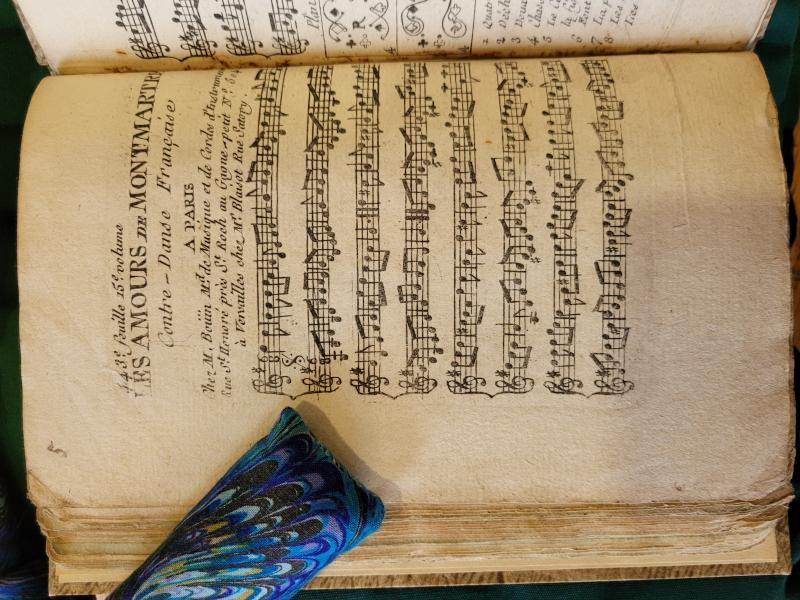 143e. feuille 15e. volume
LES AMOURS DE MONTMARTRE
Contre-Danse Française
A PARIS
Chez M. Boüin, Md. de Musique et de Cordes d'Instrumens
Rue St. Honoré près St. Roch au Gagne-petit No.
à Versailles chez Mr. Blaisot Rue Satory
5
Plan
R
4
4
1
2
3
4
5
6
7
8